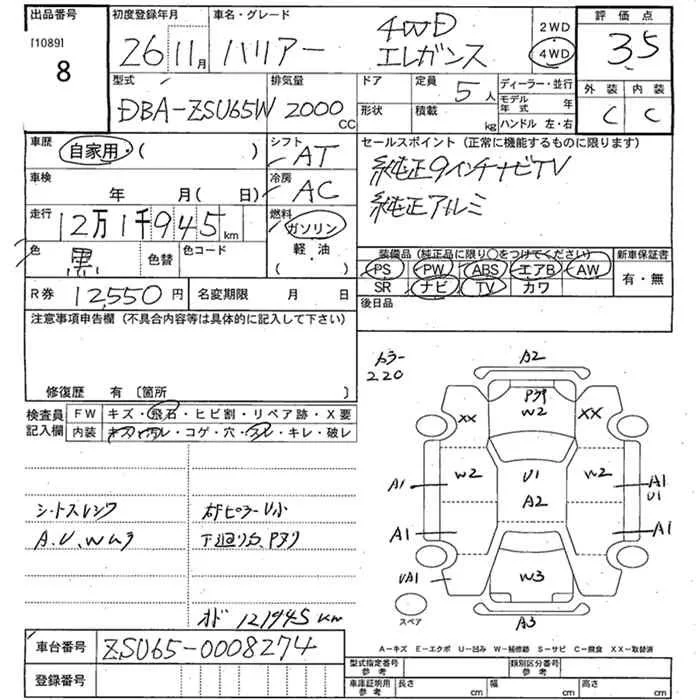 出品番号 初度登録年月 車名・グレード 評価点
[1089] 8 26 11月 ハリアー 4WD エレガンス 2WD 4WD 3.5
型式 排気量 ドア 定員 ディーラー・並行 外装 内装
DBA-ZSU65W 2000 CC 形状 積載 5人 kg モデル年式 年 ハンドル 左・右 C C
車歴 自家用・( ) シフト AT セールスポイント (正常に機能するものに限ります)
車検 年 月( 日) 冷房 AC 純正9インチナビTV
走行 12万1千945km 燃料 ガソリン 軽・油 ( ) 純正アルミ
色 黒 色替 色コード 装備品 (純正品に限り○をつけてください) 新車保証書
PS PW ABS エアB AW 有・無
R券 12,550円 名変期限 月 日 SR ナビ TV カワ
注意事項申告欄 (不具合内容等は具体的に記入して下さい) 後日品
カラー
220
修復歴 有 〔箇所 〕
検査員 FW キズ・飛石・ヒビ割・リペア跡・X要
記入欄 内装 キズ・汚レ・コゲ・穴・スレ・キレ・破レ
シートスレシワ 右ピラーU小
A.U.Wムラ 下廻り
オド 121945km
車台番号 ZSU65-0008274
登録番号
A2
W2
XX XX
A1 W2 U1 W2 A1
U1
A2
A1 A1
UA1 W3
A3
スペア
A-キズ E-エクボ U-凹み W-補修跡 S-サビ C-腐食 XX-取替済
型式指定番号 参考 類別区分番号 参考
車庫証明用 参考 長さ cm 幅 cm 高さ cm